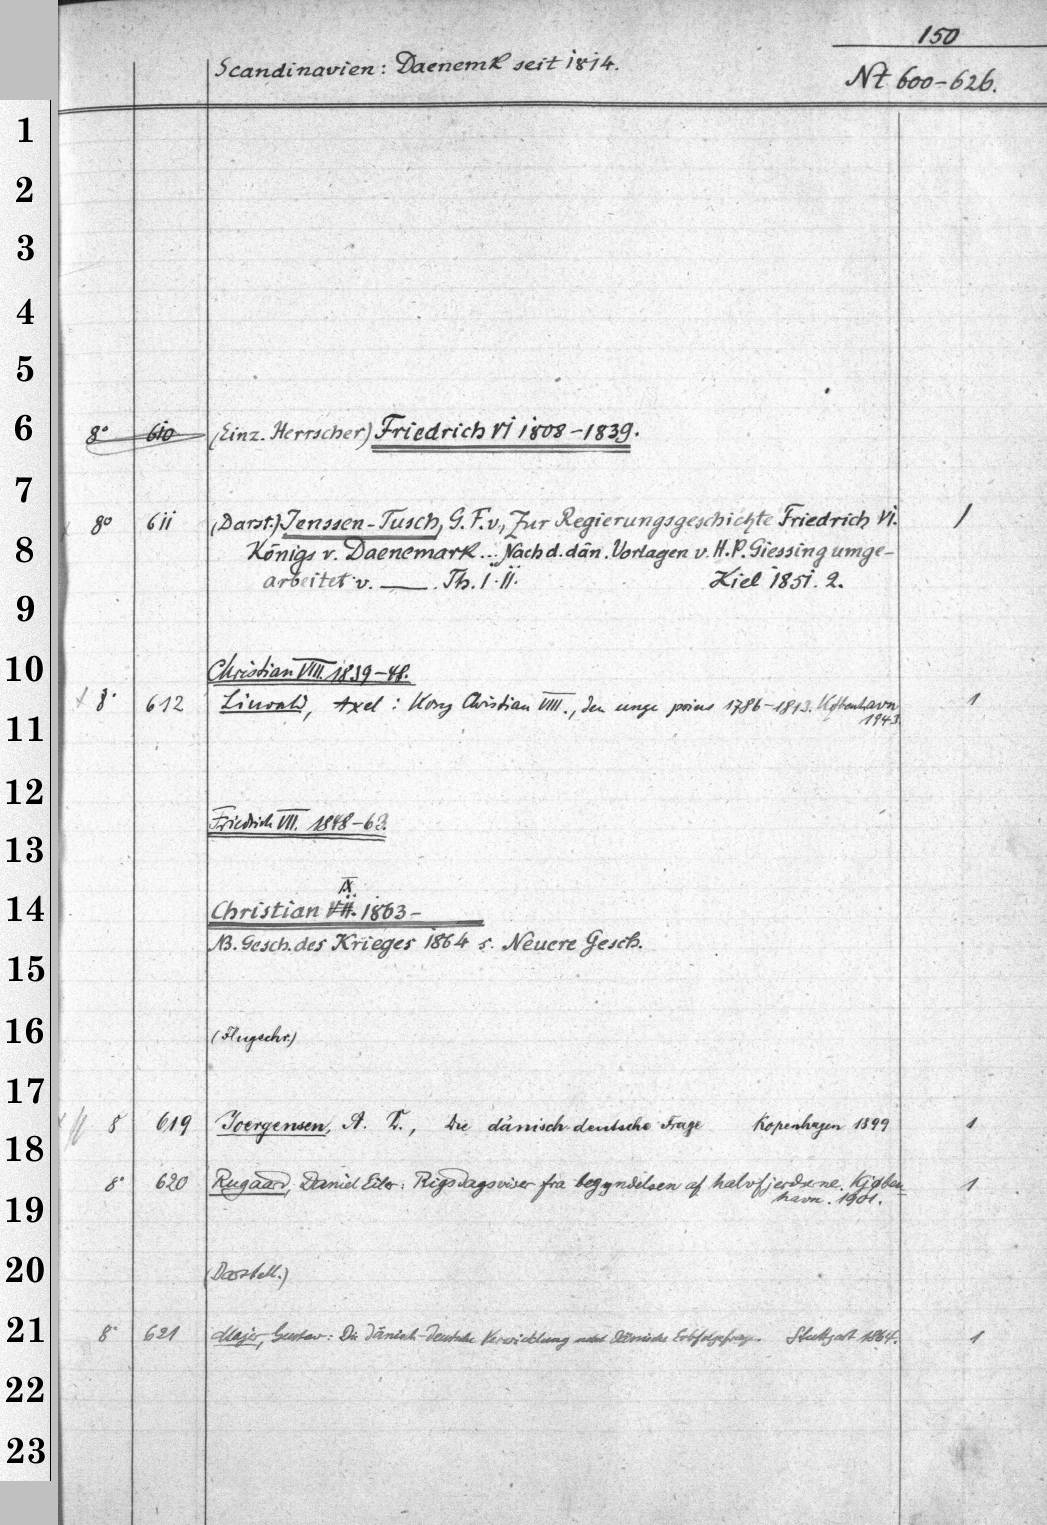 150
Scandinavien: Daenemk seit 1814.
Nt 600-626.
1
2
3
4
5
6
8° 610 (Einz. Herrscher) Friedrich VI 1808-1839.
7
8° 611 (Darst.) Jenssen-Tusch, G. F. v., Zur Regierungsgeschichte Friedrich VI. /
8
Königs v. Daenemark... Nach d. dän. Vorlagen v. H. P. Giessing umge-
arbeitet v. ——. Th. I. II. Kiel 1851. 2.
9
10
Christian VIII. 1839-48.
8° 612 Linvald, Axel: Kong Christian VIII., den unge prins 1786-1813. København 1
1943
11
12
Friedrich VII. 1848-63.
13
IX
14
Christian VII. 1863-
NB. Gesch. des Krieges 1864 s. Neuere Gesch.
15
16
(Flugschr.)
17
8° 619 Joergensen, A. D., Die dänisch-deutsche Frage Kopenhagen 1899 1
18
8° 620 Rugaard, Daniel Eiler: Rigsdagsviser fra begyndelsen af halvfjerdserne. Kjøben- 1
havn. 1901.
19
20
(Darstell.)
21
8° 621 Majer, Gustav: Die dänisch-deutsche Verwicklung nebst Dänische Erbfolgefrage. Stuttgart 1864. 1
22
23